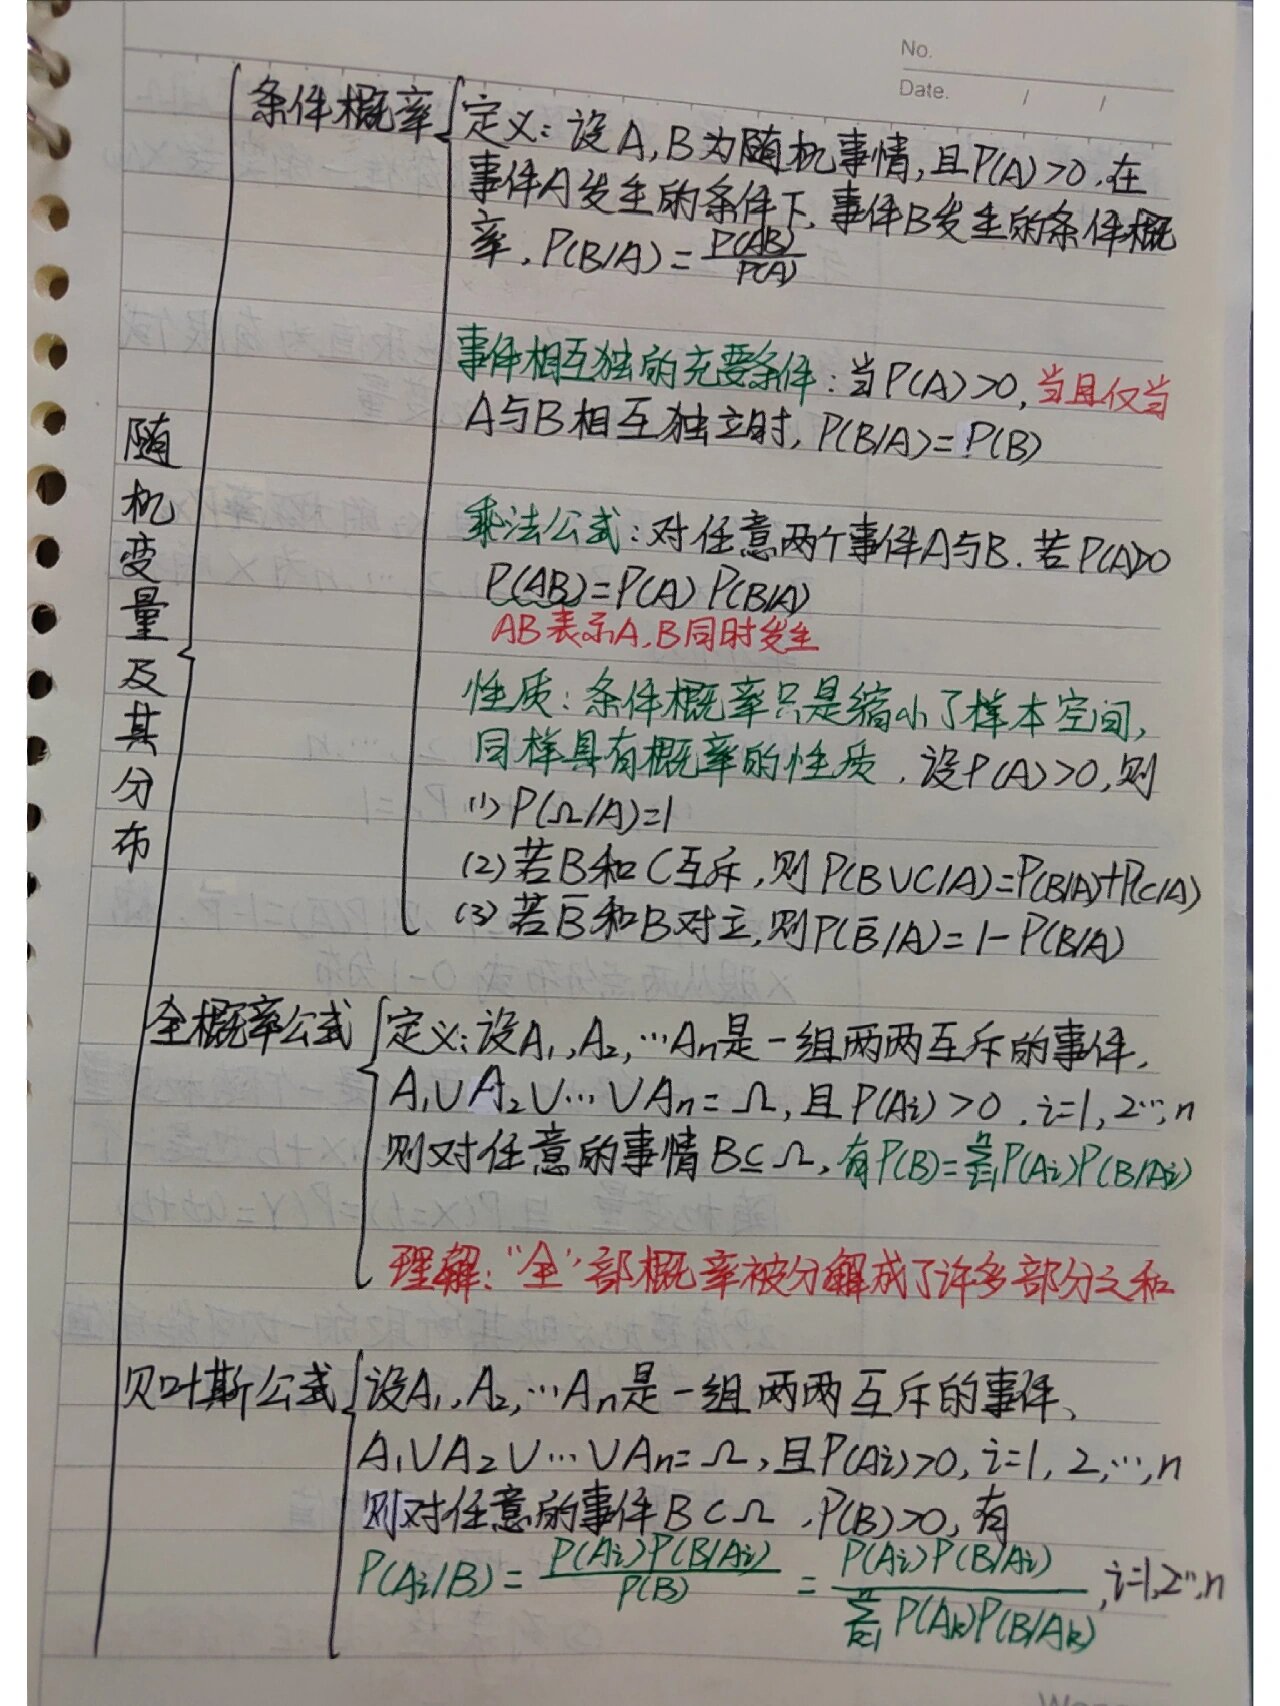 No.
Date. / /
随机变量及其分布
条件概率
定义：设A,B为随机事情,且P(A)>0.在
事件A发生的条件下,事件B发生的条件概
率,P(B/A)=P(AB)/P(A)
事件相互独的充要条件：当P(A)>0,当且仅当
A与B相互独立时,P(B/A)=P(B)
乘法公式：对任意两个事件A与B.若P(A)>0
P(AB)=P(A)P(B/A)
AB表示A,B同时发生
性质：条件概率只是缩小了样本空间,
同样具有概率的性质.设P(A)>0,则
(1)P(Ω/A)=1
(2)若B和C互斥,则P(B∪C/A)=P(B/A)+P(C/A)
(3)若B̅和B对立,则P(B̅/A)=1-P(B/A)
全概率公式
定义：设A₁,A₂,…Aₙ是一组两两互斥的事件,
A₁∪A₂∪…∪Aₙ=Ω,且P(Aᵢ)>0.i=1,2…,n
则对任意的事情B⊆Ω,有P(B)=∑ⁿᵢ₌₁P(Aᵢ)P(B/Aᵢ)
理解："全"部概率被分解成了许多部分之和
贝叶斯公式
设A₁,A₂,…Aₙ是一组两两互斥的事件、
A₁∪A₂∪…∪Aₙ=Ω,且P(Aᵢ)>0,i=1,2,…,n
则对任意的事件B⊂Ω,P(B)>0,有
P(Aᵢ/B)=P(Aᵢ)P(B/Aᵢ)/P(B)=P(Aᵢ)P(B/Aᵢ)/∑ⁿₖ₌₁P(Aₖ)P(B/Aₖ),i=1,2…,n